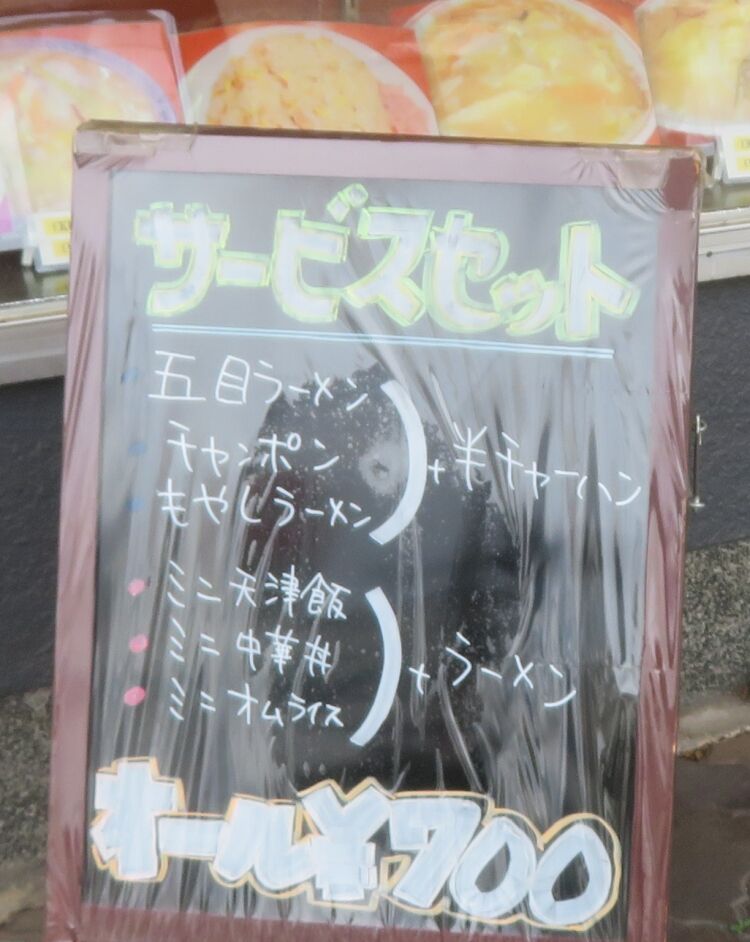 サービスセット
五目ラーメン
チャンポン
もやしラーメン
+半チャーハン
ミニ天津飯
ミニ中華丼
ミニオムライス
+ラーメン
オール¥700